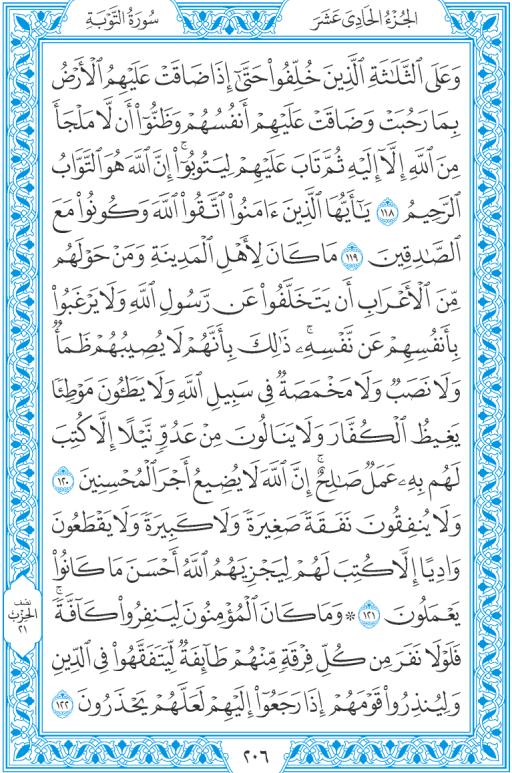 سُورَةُ التَّوْبَةِ
الجُزْءُ الحَادِي عَشَرَ
وَعَلَى ٱلثَّلَٰثَةِ ٱلَّذِينَ خُلِّفُواْ حَتَّىٰٓ إِذَا ضَاقَتْ عَلَيْهِمُ ٱلْأَرْضُ
بِمَا رَحُبَتْ وَضَاقَتْ عَلَيْهِمْ أَنفُسُهُمْ وَظَنُّوٓاْ أَن لَّا مَلْجَأَ
مِنَ ٱللَّهِ إِلَّآ إِلَيْهِ ثُمَّ تَابَ عَلَيْهِمْ لِيَتُوبُوٓاْۚ إِنَّ ٱللَّهَ هُوَ ٱلتَّوَّابُ
ٱلرَّحِيمُ ١١٨ يَٰٓأَيُّهَا ٱلَّذِينَ ءَامَنُواْ ٱتَّقُواْ ٱللَّهَ وَكُونُواْ مَعَ
ٱلصَّٰدِقِينَ ١١٩ مَا كَانَ لِأَهْلِ ٱلْمَدِينَةِ وَمَنْ حَوْلَهُم
مِّنَ ٱلْأَعْرَابِ أَن يَتَخَلَّفُواْ عَن رَّسُولِ ٱللَّهِ وَلَا يَرْغَبُواْ
بِأَنفُسِهِمْ عَن نَّفْسِهِۦۚ ذَٰلِكَ بِأَنَّهُمْ لَا يُصِيبُهُمْ ظَمَأٌ
وَلَا نَصَبٌ وَلَا مَخْمَصَةٌ فِي سَبِيلِ ٱللَّهِ وَلَا يَطَـُٔونَ مَوْطِئًا
يَغِيظُ ٱلْكُفَّارَ وَلَا يَنَالُونَ مِنْ عَدُوٍّ نَّيْلًا إِلَّا كُتِبَ
لَهُم بِهِۦ عَمَلٌ صَٰلِحٌۚ إِنَّ ٱللَّهَ لَا يُضِيعُ أَجْرَ ٱلْمُحْسِنِينَ ١٢٠
وَلَا يُنفِقُونَ نَفَقَةً صَغِيرَةً وَلَا كَبِيرَةً وَلَا يَقْطَعُونَ
وَادِيًا إِلَّا كُتِبَ لَهُمْ لِيَجْزِيَهُمُ ٱللَّهُ أَحْسَنَ مَا كَانُواْ
يَعْمَلُونَ ١٢١ ۞ وَمَا كَانَ ٱلْمُؤْمِنُونَ لِيَنفِرُواْ كَآفَّةًۚ
فَلَوْلَا نَفَرَ مِن كُلِّ فِرْقَةٍ مِّنْهُمْ طَآئِفَةٌ لِّيَتَفَقَّهُواْ فِي ٱلدِّينِ
وَلِيُنذِرُواْ قَوْمَهُمْ إِذَا رَجَعُوٓاْ إِلَيْهِمْ لَعَلَّهُمْ يَحْذَرُونَ ١٢٢
نصف
الحِزْب
٢١
٢٠٦